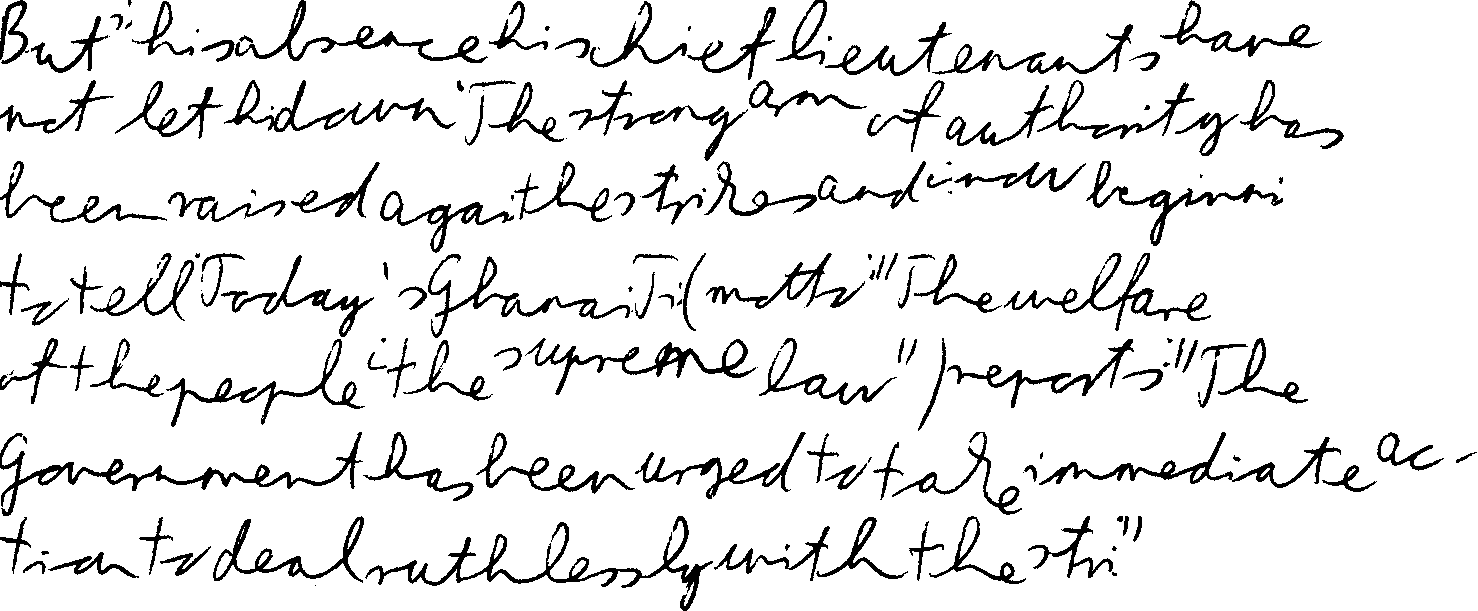 But i his absence his chief lieutenants have
not let hi down. The strong arm of authority has
been raised agai the strikes and i now beginni
to tell. Today's Ghanai Ti (motto: "The welfare
of the people i the supreme law") reports: "The
Government has been urged to take immediate ac-
tion to deal ruthlessly with the stri"